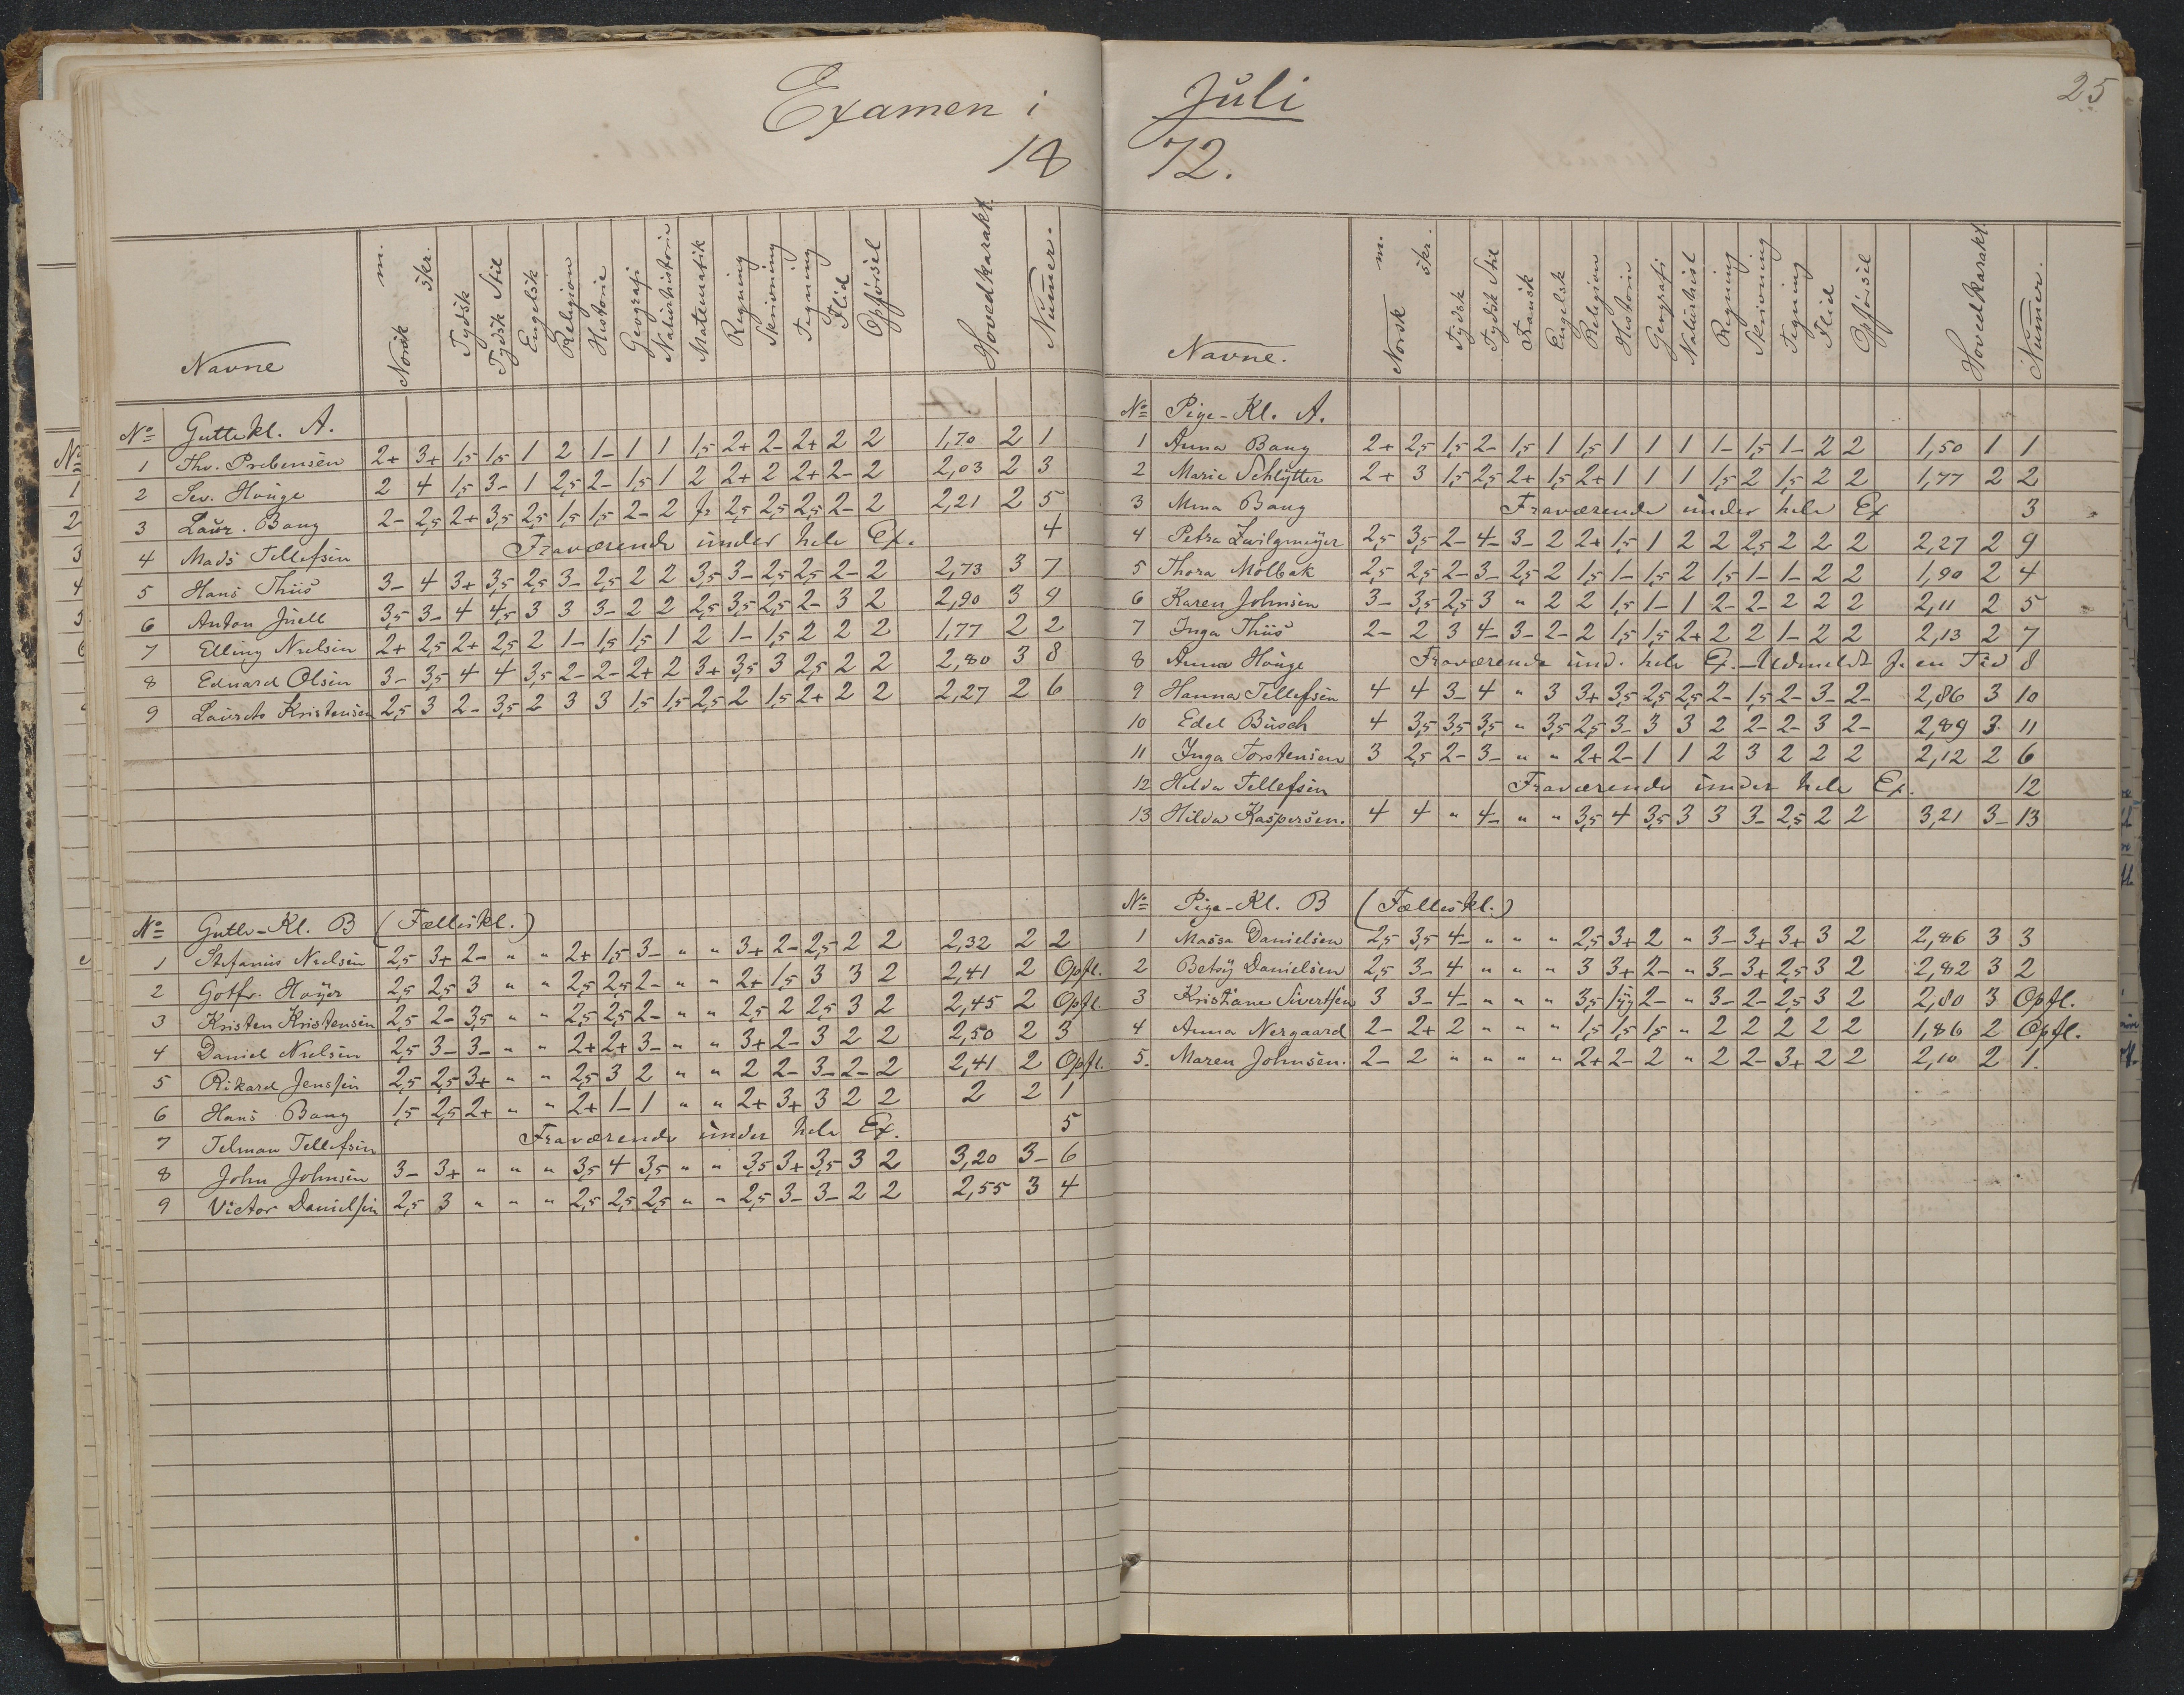 Examen i
18
Navne Norsk m. skr. Tydsk Tydsk Stil Engelsk Religion Historie Geografi Naturhistorie Matematik Regning Skrivning Tegning Flid Opførsel Hovedkarakt. Numer.
No Guttekl. A.
1 Thv. Prebensen 2+ 3+ 1,5 1,5 1 2 1- 1 1 1,5 2+ 2- 2+ 2 2 1,70 2 1
2 Sev. Houge 2 4 1,5 3- 1 2,5 2- 1,5 1 2 2+ 2 2+ 2- 2 2,03 2 3
3 Laur. Bang 2- 2,5 2+ 3,5 2,5 1,5 1,5 2- 2 fr 2,5 2,5 2,5 2- 2 2,21 2 5
4 Mads Tellefsen Fraværende under hele Ex. 4
5 Hans Thiis 3- 4 3+ 3,5 2,5 3- 2,5 2 2 3,5 3- 2,5 2,5 2- 2 2,73 3 7
6 Anton Juell 3,5 3- 4 4,5 3 3 3- 2 2 2,5 3,5 2,5 2- 3 2 2,90 3 9
7 Elling Nielsen 2+ 2,5 2+ 2,5 2 1- 1,5 1,5 1 2 1- 1,5 2 2 2 1,77 2 2
8 Eduard Olsen 3- 3,5 4 4 3,5 2- 2- 2+ 2 3+ 3,5 3 2,5 2 2 2,80 3 8
9 Laurets Kristensen 2,5 3 2- 3,5 2 3 3 1,5 1,5 2,5 2 1,5 2+ 2 2 2,27 2 6
No Gutte-Kl. B (Fælleskl.)
1 Stefanus Nielsen 2,5 3+ 2- " " 2+ 1,5 3- " " 3+ 2- 2,5 2 2 2,32 2 2
2 Gotfr. Høyer 2,5 2,5 3 " " 2,5 2,5 2- " " 2+ 1,5 3 3 2 2,41 2 Opfl.
3 Kristen Kristensen 2,5 2- 3,5 " " 2,5 2,5 2- " " 2,5 2 2,5 3 2 2,45 2 Opfl.
4 Daniel Nielsen 2,5 3- 3- " " 2+ 2+ 3- " " 3+ 2- 3 2 2 2,50 2 3
5 Rikard Jenssen 2,5 2,5 3+ " " 2,5 3 2 " " 2 2- 3- 2- 2 2,41 2 Opfl.
6 Hans Bang 1,5 2,5 2+ " " 2+ 1- 1 " " 2+ 3+ 3 2 2 2 2 1
7 Telman Tellefsen Fraværende under hele Ex. 5
8 John Johnsen 3- 3+ " " " 3,5 4 3,5 " " 3,5 3+ 3,5 3 2 3,20 3- 6
9 Victor Danielsen 2,5 3 " " " 2,5 2,5 2,5 " " 2,5 3- 3- 2 2 2,55 3 4
Juli 25
72.
Navne. Norsk m. skr. Tydsk Tydsk Stil Fransk Engelsk Religion Historie Geografi Naturhist Regning Skrivning Tegning Flid Opførsel Hovedkarakt. Nummer.
No Pige-Kl. A.
1 Anna Bang 2+ 2,5 1,5 2- 1,5 1 1,5 1 1 1 1- 1,5 1- 2 2 1,50 1 1
2 Marie Schlytter 2+ 3 1,5 2,5 2+ 1,5 2+ 1 1 1 1,5 2 1,5 2 2 1,77 2 2
3 Mina Bang Fraværende under hele Ex 3
4 Petra Zwilgmeyer 2,5 3,5 2- 4- 3- 2 2+ 1,5 1 2 2 2,5 2 2 2 2,27 2 9
5 Thora Mölbak 2,5 2,5 2- 3- 2,5 2 1,5 1- 1,5 2 1,5 1- 1- 2 2 1,90 2 4
6 Karen Johnsen 3- 3,5 2,5 3 " 2 2 1,5 1- 1 2- 2- 2 2 2 2,11 2 5
7 Inga Thiis 2- 2 3 4- 3- 2- 2 1,5 1,5 2+ 2 2 1- 2 2 2,13 2 7
8 Anna Houge Fraværende und. hele Ex. - Udmeldt f. en Tid 8
9 Hanna Tellefsen 4 4 3- 4 " 3 3+ 3,5 2,5 2,5 2- 1,5 2- 3- 2- 2,86 3 10
10 Edel Busch 4 3,5 3,5 3,5 " 3,5 2,5 3- 3 3 2 2- 2- 3 2- 2,89 3 11
11 Inga Torstensen 3 2,5 2- 3- " " 2+ 2- 1 1 2 3 2 2 2 2,12 2 6
12 Hilda Tellefsen Fraværende under hele Ex. 12
13 Hilda Kaspersen. 4 4 " 4- " " 3,5 4 3,5 3 3 3- 2,5 2 2 3,21 3- 13
No Pige-Kl. B (Fælleskl.)
1 Massa Danielsen 2,5 3,5 4- " " " 2,5 3+ 2 " 3- 3+ 3+ 3 2 2,86 3 3
2 Betsy Danielsen 2,5 3- 4 " " " 3 3+ 2- " 3- 3+ 2,5 3 2 2,82 3 2
3 Kristiane Sivertsen 3 3- 4- " " " 3,5 2- " 3- 2- 2,5 3 2 2,80 3 Opfl.
4 Anna Nergaard 2- 2+ 2 " " " 1,5 1,5 1,5 " 2 2 2 2 2 1,86 2 Opfl.
5. Maren Johnsen. 2- 2 " " " " 2+ 2- 2 " 2 2- 3+ 2 2 2,10 2 1.